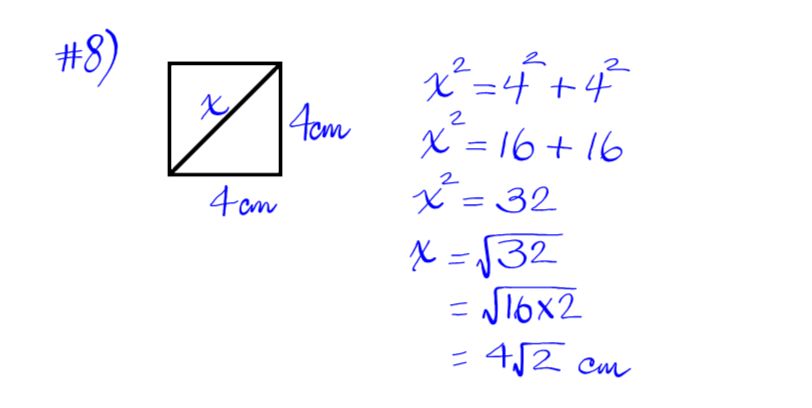 #8)
x
4cm
4cm
x² = 4² + 4²
x² = 16 + 16
x² = 32
x = √32
= √16x2
= 4√2 cm